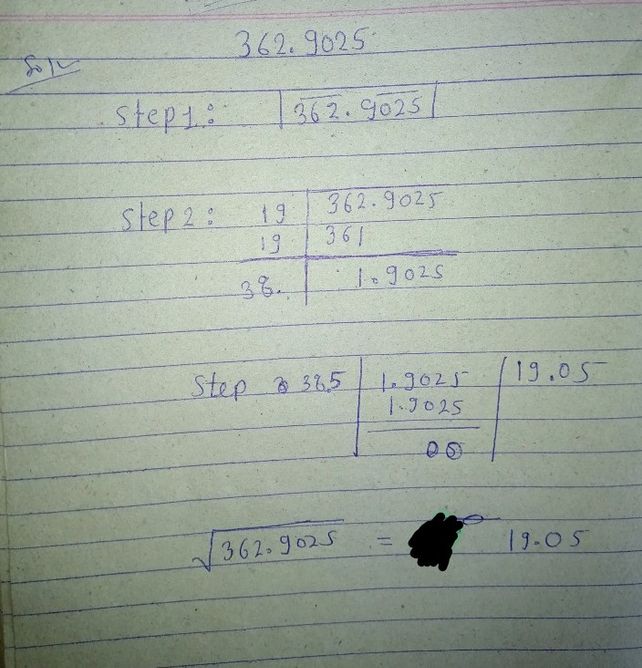 362.9025
Soln
Step 1: 362.9025
Step 2: 19 362.9025
19 361
38. 1.9025
Step 3 38.5 1.9025 19.05
1.9025
00
√362.9025 = 19.05